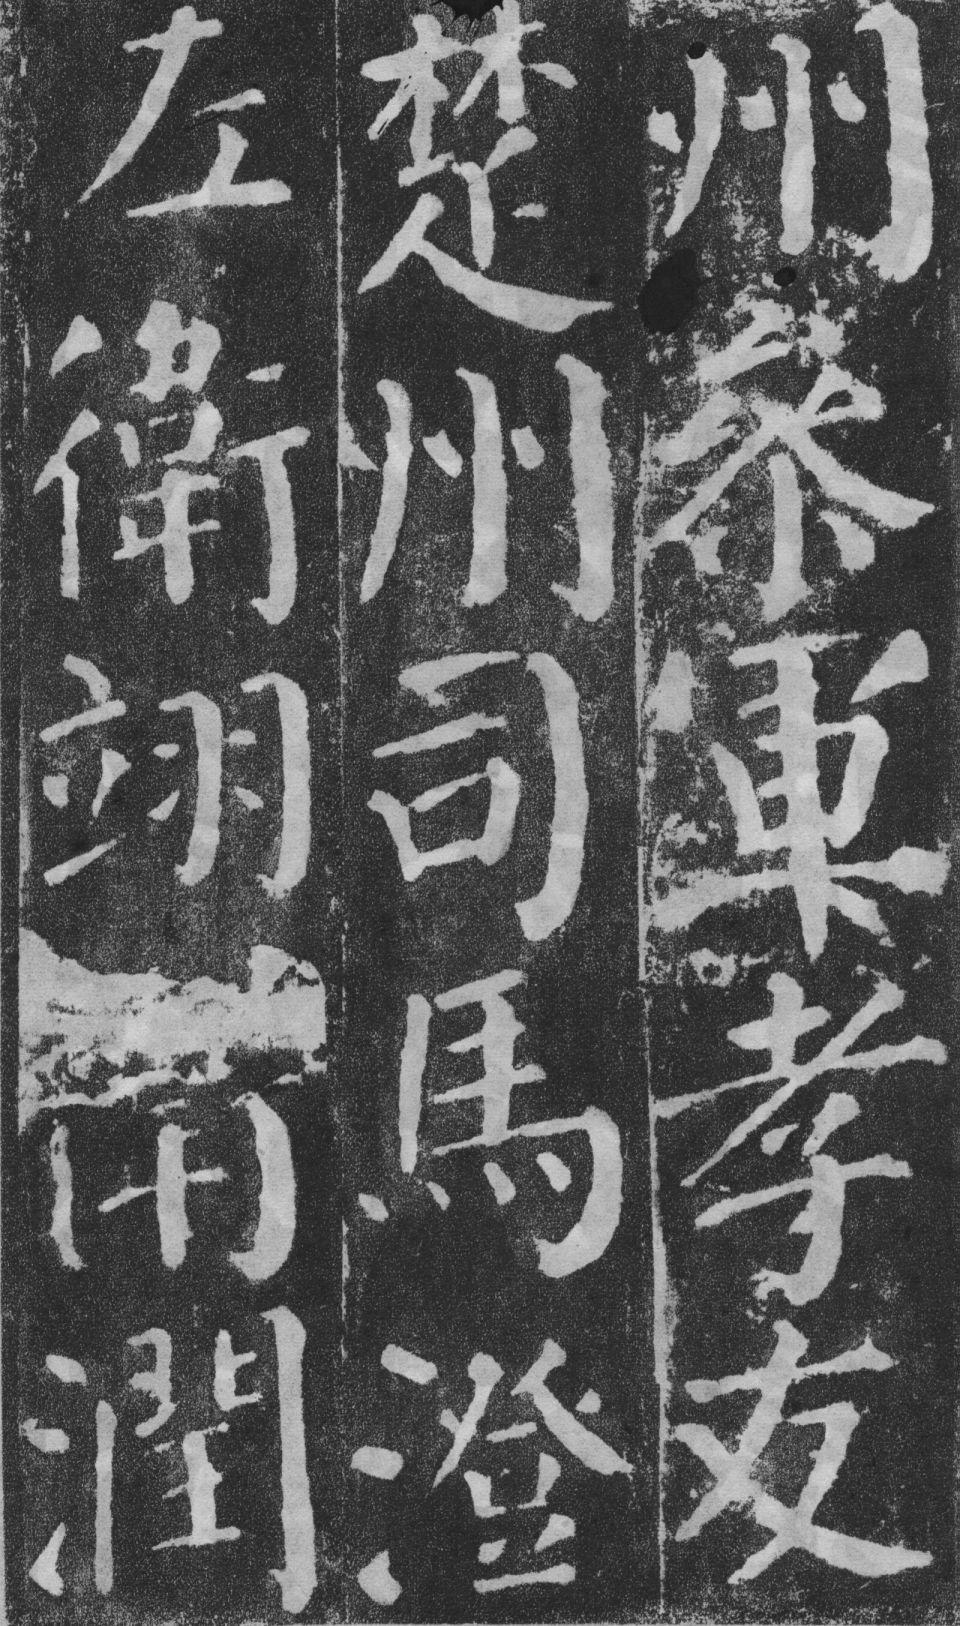 州叅軍孝友
楚州司馬澄
左衛翊府潤